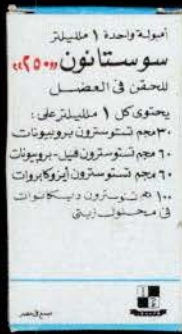 أمبولة واحدة ١ ملليلتر
سوستانون "٢٥٠"
للحقن في العضل
يحتوى كل ١ ملليلتر على :
٣٠ مجم تستوسترون بروبيونات
٦٠ مجم تستوسترون فنيل - بروبيونات
٦٠ مجم تستوسترون أيزوكابروات
١٠٠ مجم تستوسترون ديكانوات
في محلول زيتي